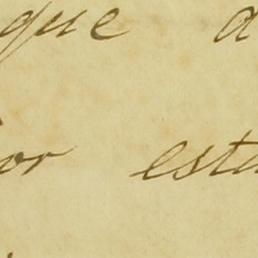 que a
or esta